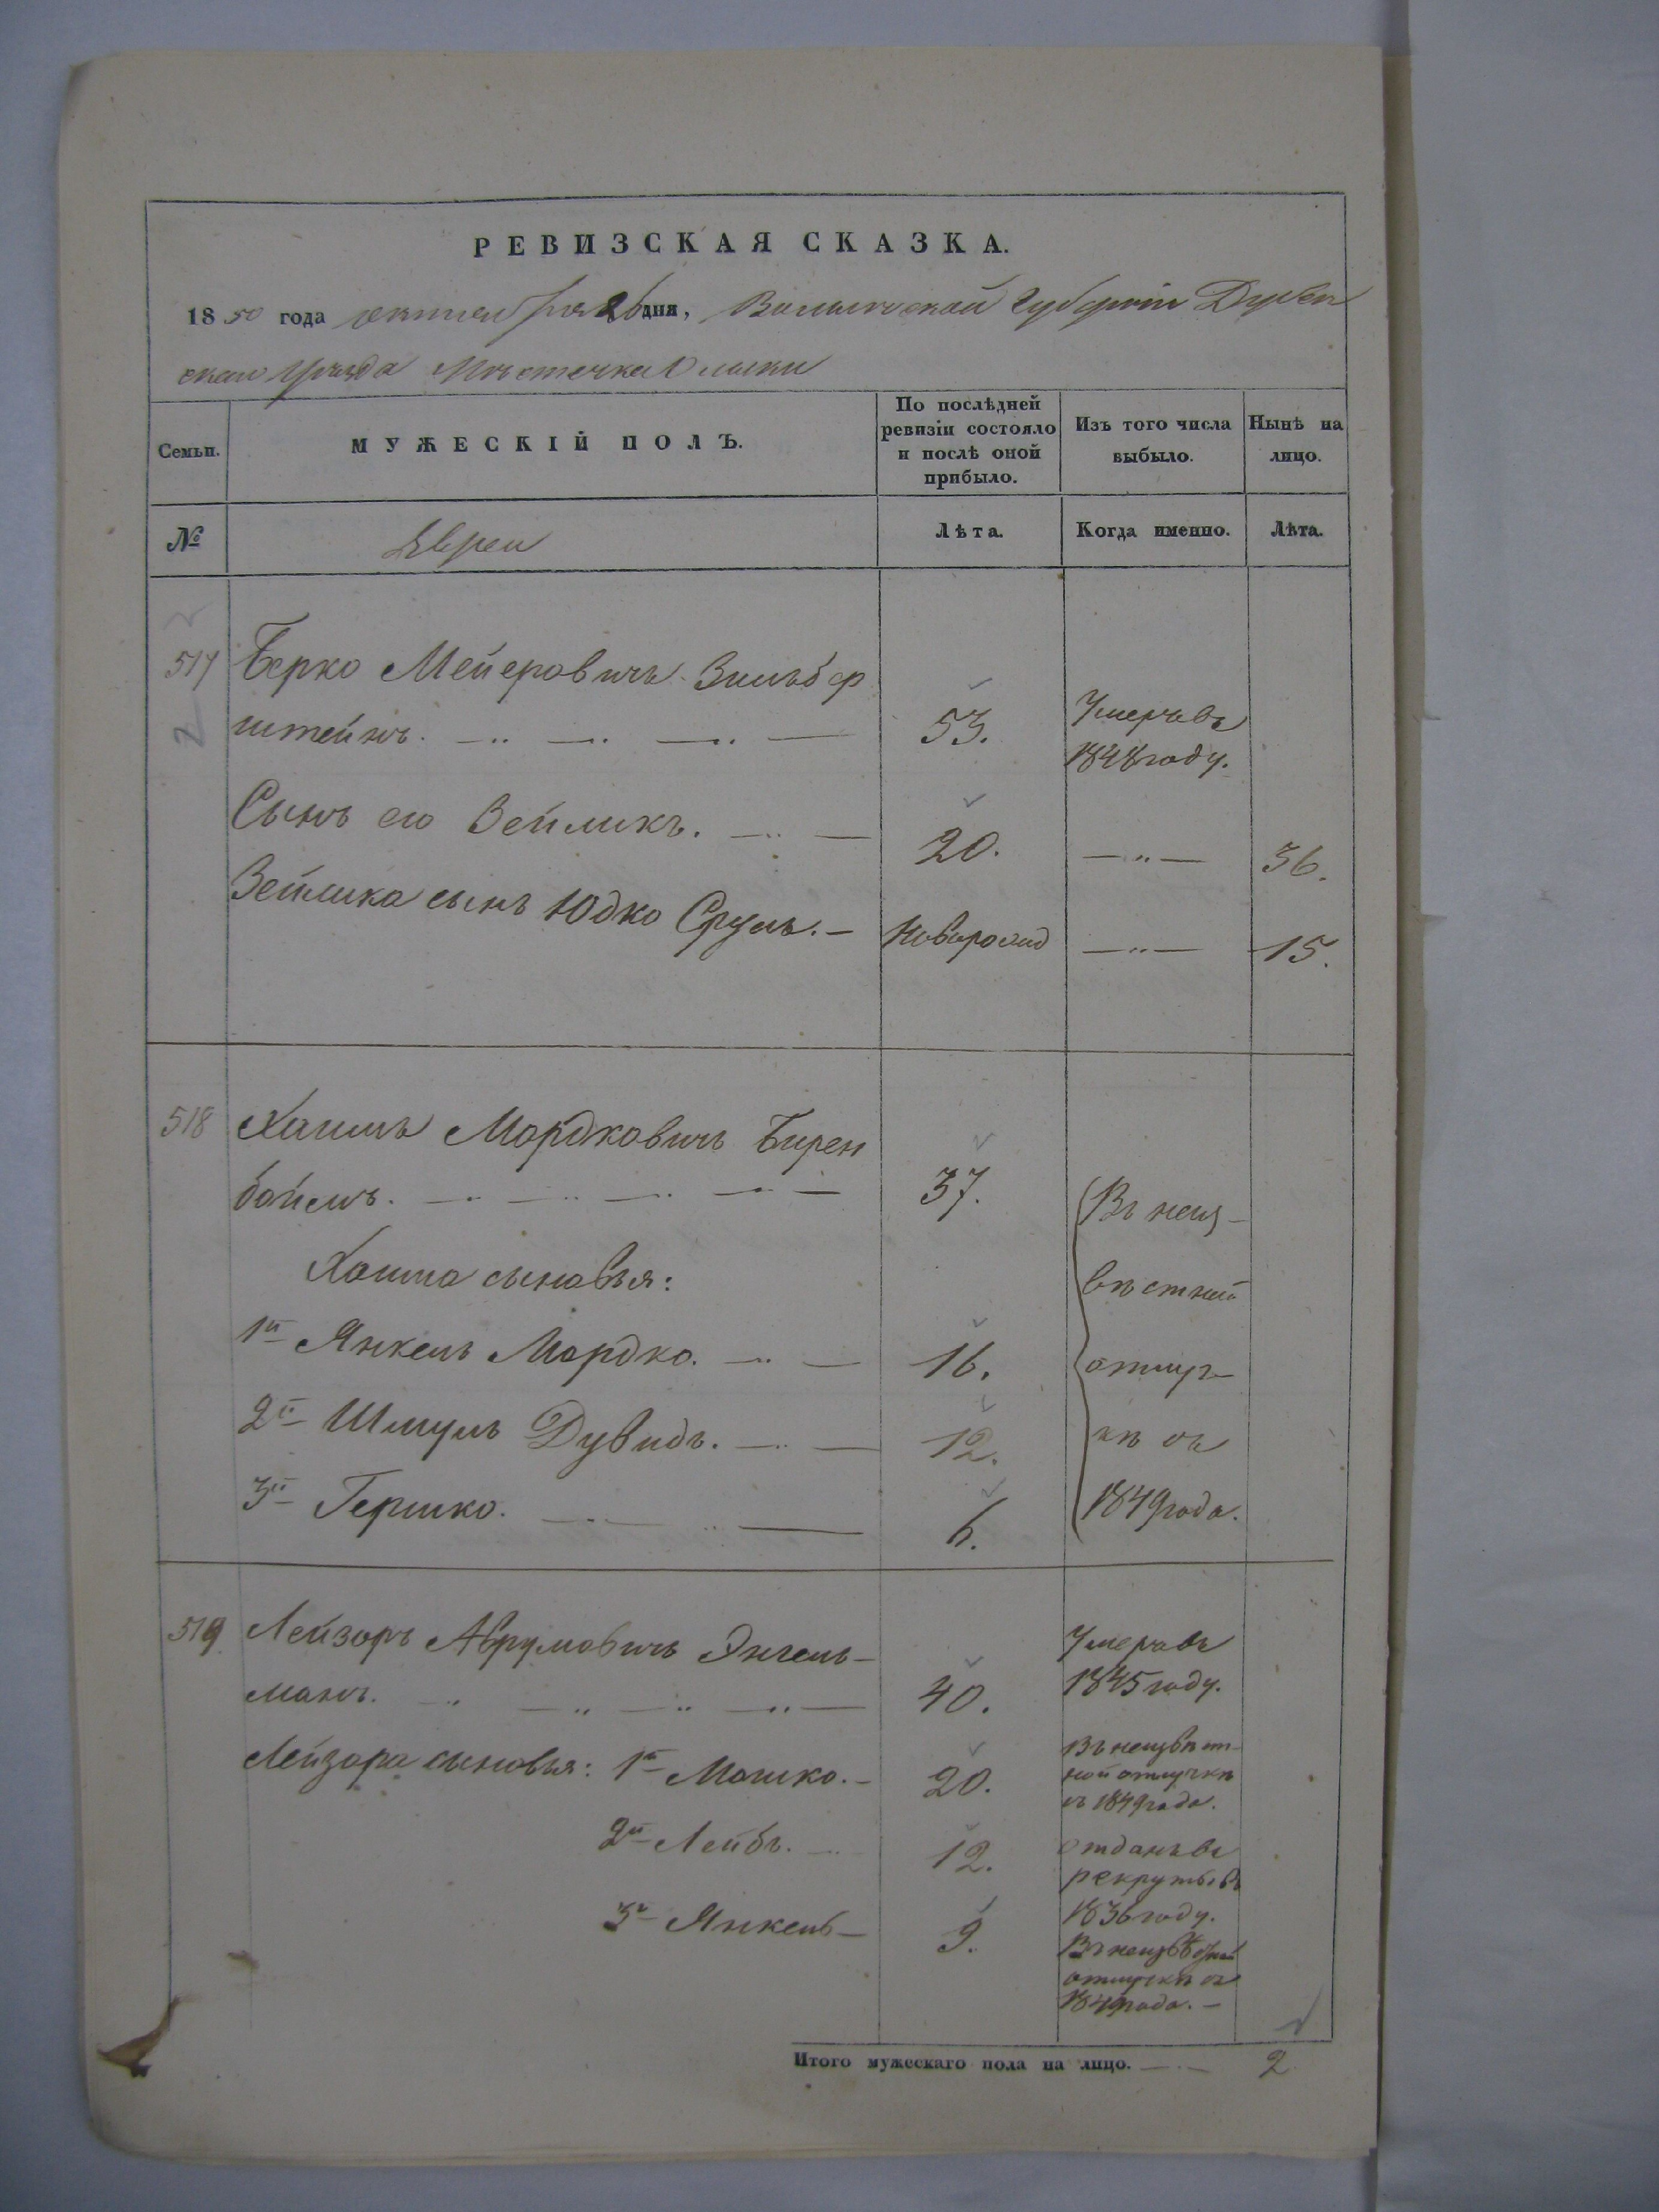 РЕВИЗСКАЯ СКАЗКА.
1850 года октября 26 дня, Волынской Губерніи Дубен
скаго Уѣзда Мѣстечка Олыки
Семьи.
МУЖЕСКІЙ ПОЛЪ.
По послѣдней
ревизіи состояло
и послѣ оной
прибыло.
Изъ того числа
выбыло.
Нынѣ на
лицо.
№
Евреи
Лѣта.
Когда именно.
Лѣта.
517 Берко Мейеровичъ Зильбер
штейнъ. 53. Умеръ въ
1848 году.
Сынъ его Зейликъ. 20. 36.
Зейлика сынъ Юдко Сруль. Новорожд 15.
518 Хаимъ Мордковичъ Бирен
боймъ. 37.
Хаима сыновья:
1й Янкель Мордко. 16.
2й Шмуль Дувидъ. 12.
3й Гершко. 6.
Въ неиз-
вѣстной
отлуч-
кѣ съ
1849 года.
519 Лейзоръ Аврумовичъ Энгель-
манъ. 40. Умеръ въ
1845 году.
Лейзора сыновья: 1й Мошко. 20. Въ неизвѣст-
ной отлучкѣ
съ 1849 года.
2й Лейбъ. 12. отданъ въ
рекруты въ
1836 году.
3й Янкель 9. Въ неизвѣстной
отлучкѣ съ
1849 года.
Итого мужескаго пола на лицо. 2